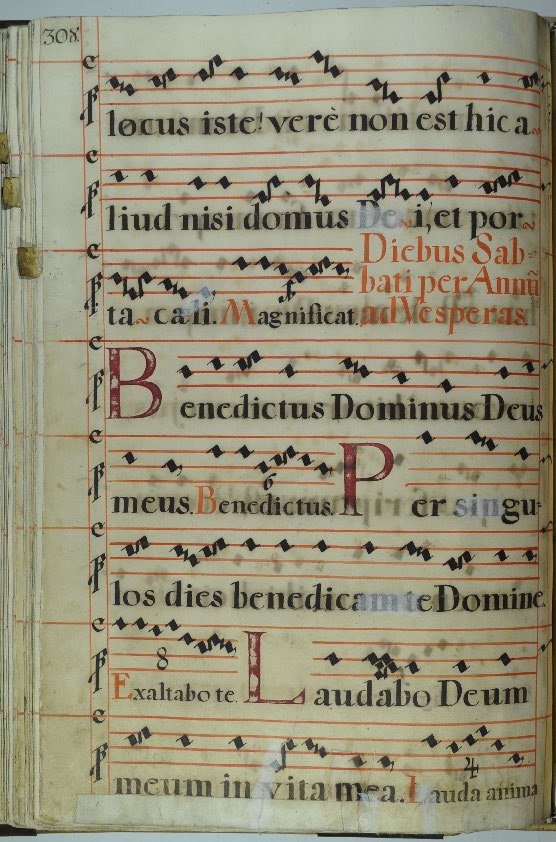 308.
locus iste! verè non est hic a~
liud nisi domus De~i, et por~
Diebus Sab=
bati per Annũ
ta~ cæli. Magnificat. ad Vesperas
Benedictus Dominus Deus
6
meus. Benedictus. Per singu-
los dies benedicam te Domine.
8
Exaltabo te. Laudabo Deum
4
meum in vita mea. Lauda anima